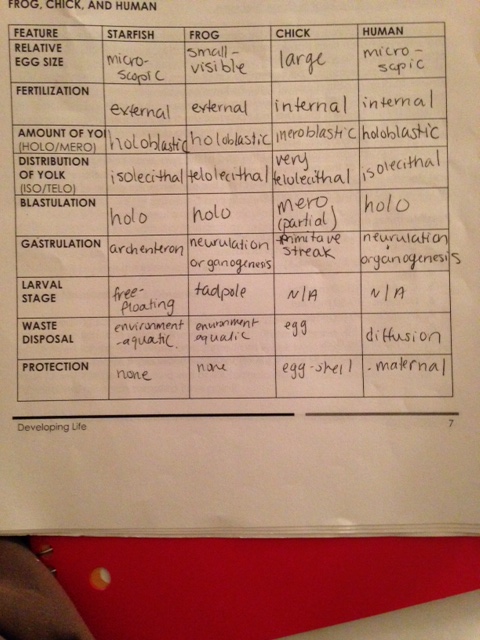 FROG, CHICK, AND HUMAN
FEATURE STARFISH FROG CHICK HUMAN
RELATIVE EGG SIZE micro-scopic small-visible large micro-scopic
FERTILIZATION external external internal internal
AMOUNT OF YOL (HOLO/MERO) holoblastic holoblastic meroblastic holoblastic
DISTRIBUTION OF YOLK (ISO/TELO) isolecithal telolecithal very telolecithal isolecithal
BLASTULATION holo holo mero (partial) holo
GASTRULATION archenteron neurulation organogenesis primitave streak neurulation organogenesis
LARVAL STAGE free-floating tadpole N/A N/A
WASTE DISPOSAL environment-aquatic. environment aquatic egg diffusion
PROTECTION none none egg-shell maternal
Developing Life 7